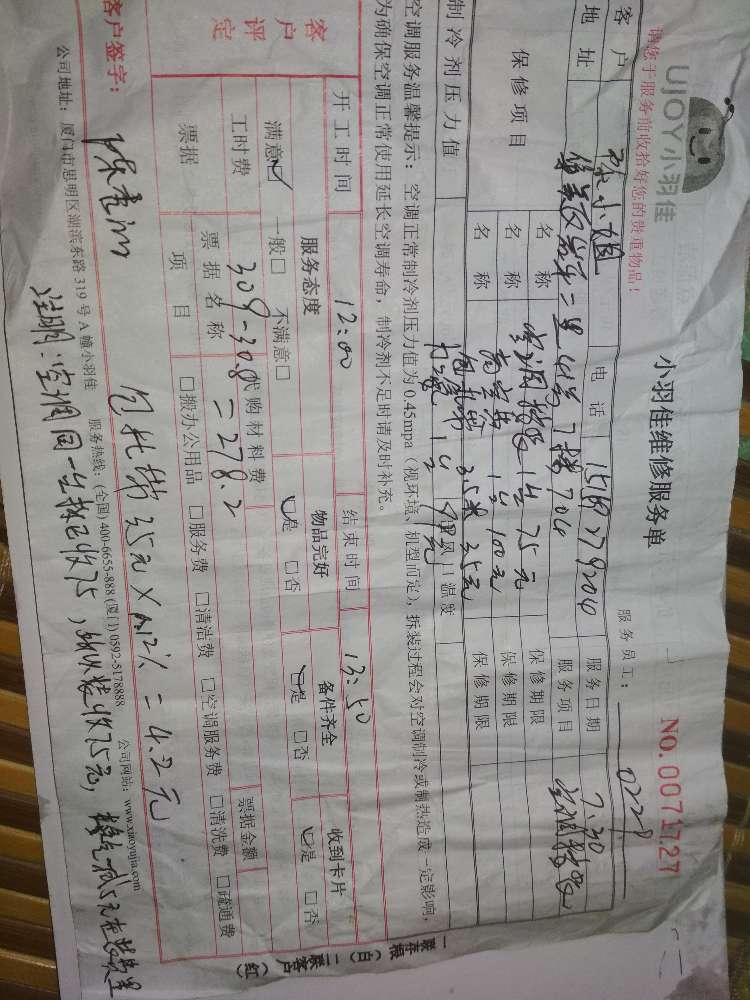 UJOY小羽佳
小羽佳维修服务单
No.0071727
请您于服务前收拾好您的贵重物品！
服务员工： 0229
客户 小姐 电话 服务日期 7.30
地址 二里 7楼704 服务项目 空调移装
保修项目 名称 空调移装1台75元 保修期限
名称 1台100元 保修期限
名称 包扎带 3.5米 35元 保修期限
制冷剂压力值 出风口温度
空调服务温馨提示：空调正常制冷剂压力值为0.45mpa（视环境、机型而定），拆装过程会对空调制冷或制热造成一定影响，
为确保空调正常使用延长空调寿命，制冷剂不足时请及时补充。
开工时间 12:00 结束时间 13:50
客户评定 服务态度 物品完好 备件齐全 收到卡片
满意☑ 一般□ 不满意□ ☑是 □否 ☑是 □否 ☑是 □否
工时费 309-30.8=278.2 代购材料费
票据 票据名称 票据金额
项目 □搬办公用品 □服务费 □清洁费 □空调服务费 □清洗费 □疏通费
包扎带35元×0.12%=4.2元
客户签字：
公司地址：厦门市思明区湖滨东路319号A幢小羽佳 服务热线：(全国)400-6655-888 (厦门)0592-5178888 公司网站：www.xiaoyujia.com
注明：空调同一台移已收75，
一联存根（白）二联客户（红）